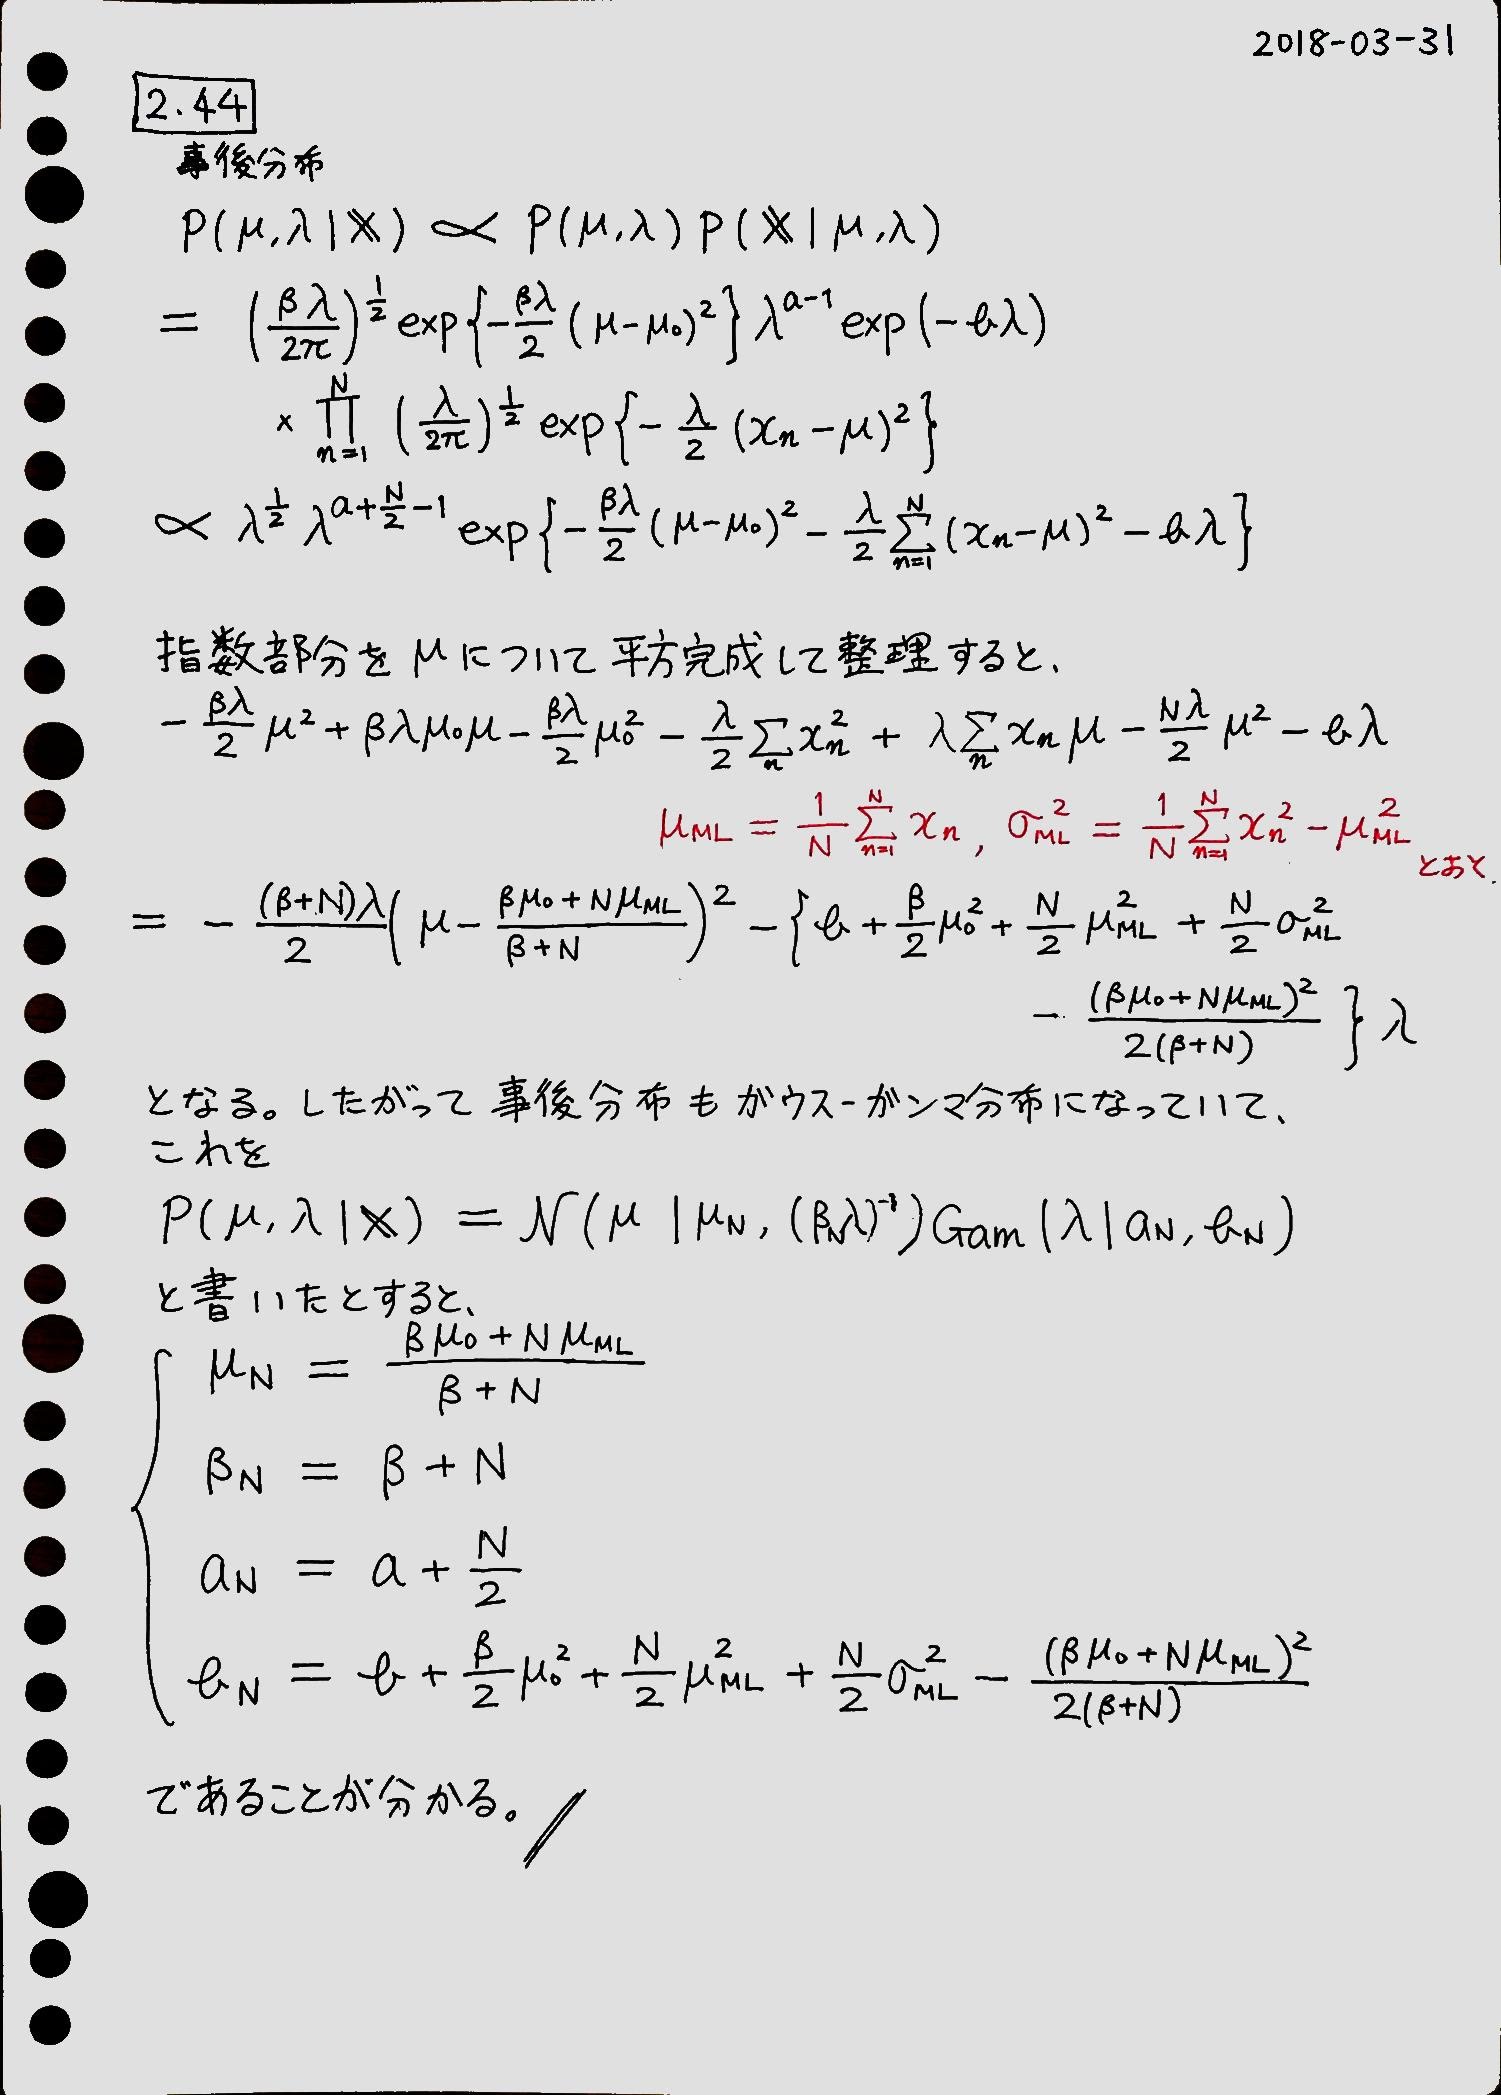 2018-03-31
2.44
事後分布
P(μ,λ|𝕏) ∝ P(μ,λ) P(𝕏|μ,λ)
= (βλ/2π)^{1/2} exp{-βλ/2 (μ-μ₀)²} λ^{a-1} exp(-bλ)
× ∏_{n=1}^{N} (λ/2π)^{1/2} exp{-λ/2 (x_n-μ)²}
∝ λ^{1/2} λ^{a+N/2-1} exp{-βλ/2 (μ-μ₀)² - λ/2 ∑_{n=1}^{N} (x_n-μ)² - bλ}
指数部分を μ について平方完成して整理すると、
-βλ/2 μ² + βλμ₀μ - βλ/2 μ₀² - λ/2 ∑_n x_n² + λ∑_n x_n μ - Nλ/2 μ² - bλ
μ_ML = 1/N ∑_{n=1}^{N} x_n, σ_ML² = 1/N ∑_{n=1}^{N} x_n² - μ_ML² とおく
= -(β+N)λ/2 (μ - (βμ₀+Nμ_ML)/(β+N))² - {b + β/2 μ₀² + N/2 μ_ML² + N/2 σ_ML²
- (βμ₀+Nμ_ML)²/2(β+N)} λ
となる。したがって事後分布もガウス-ガンマ分布になっていて、
これを
P(μ,λ|𝕏) = N(μ|μ_N, (β_Nλ)^{-1}) Gam(λ|a_N, b_N)
と書いたとすると、
μ_N = (βμ₀+Nμ_ML)/(β+N)
β_N = β+N
a_N = a + N/2
b_N = b + β/2 μ₀² + N/2 μ_ML² + N/2 σ_ML² - (βμ₀+Nμ_ML)²/2(β+N)
であることが分かる。//